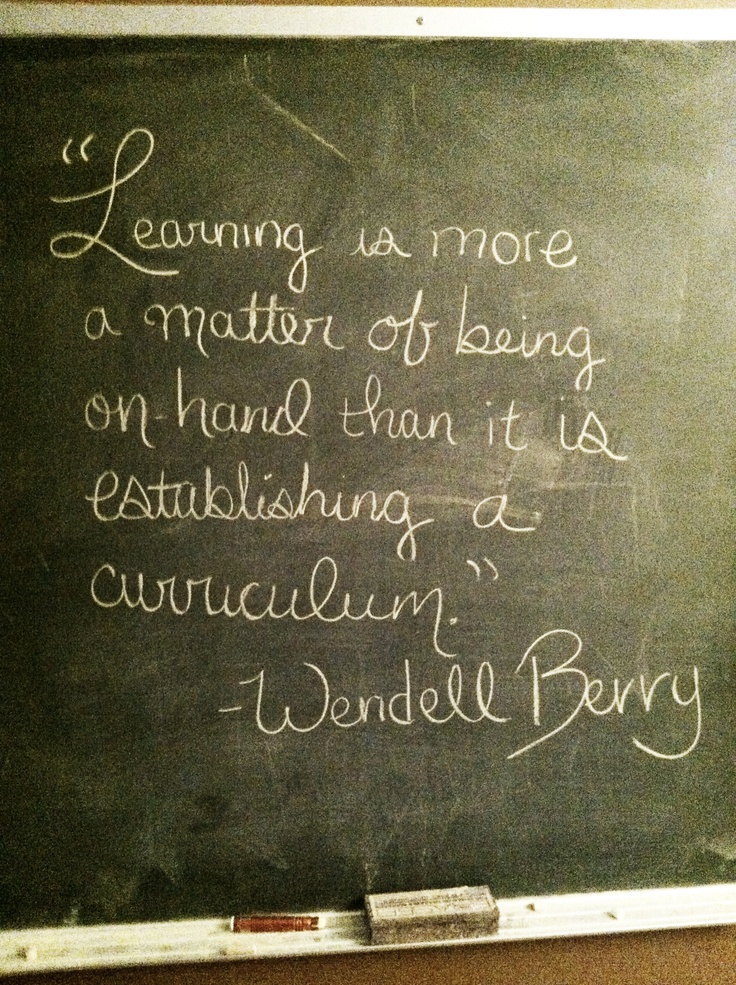 "Learning is more
a matter of being
on-hand than it is
establishing a
curriculum."
-Wendell Berry